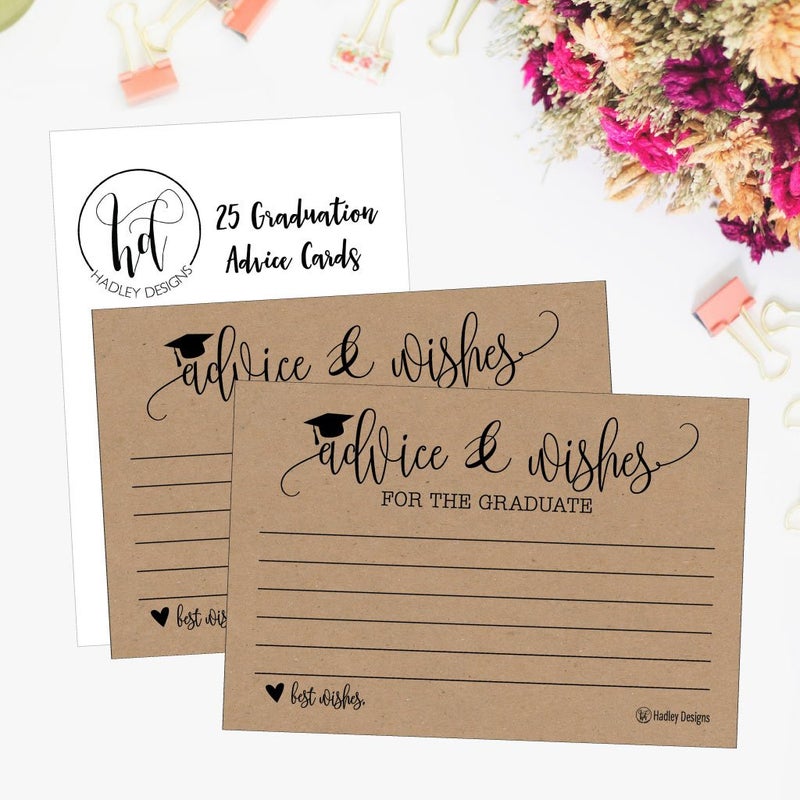 hd
HADLEY DESIGNS
25 Graduation
Advice Cards
advice & wishes
best wis
advice & wishes
FOR THE GRADUATE
best wishes,
hd Hadley Designs